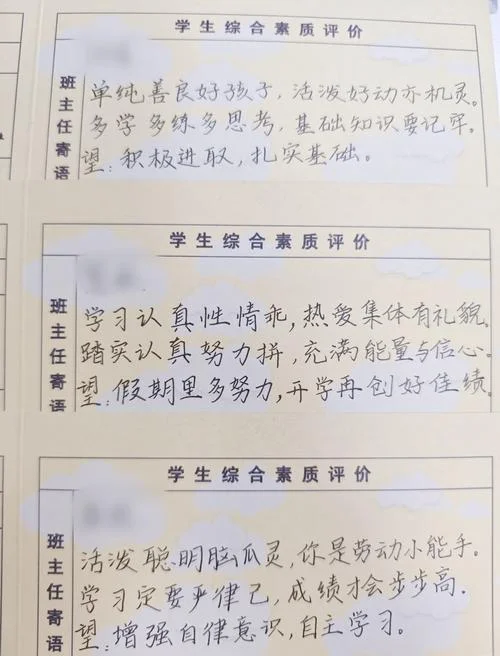 学生综合素质评价
班主任寄语
单纯善良好孩子，活泼好动亦机灵。
多学多练多思考，基础知识要记牢。
望：积极进取，扎实基础。
学生综合素质评价
班主任寄语
学习认真性情乖，热爱集体有礼貌。
踏实认真努力拼，充满能量与信心。
望：假期里多努力，开学再创好佳绩。
学生综合素质评价
班主任寄语
活泼聪明脑瓜灵，你是劳动小能手。
学习定要严律己，成绩才会步步高.
望：增强自律意识，自主学习。